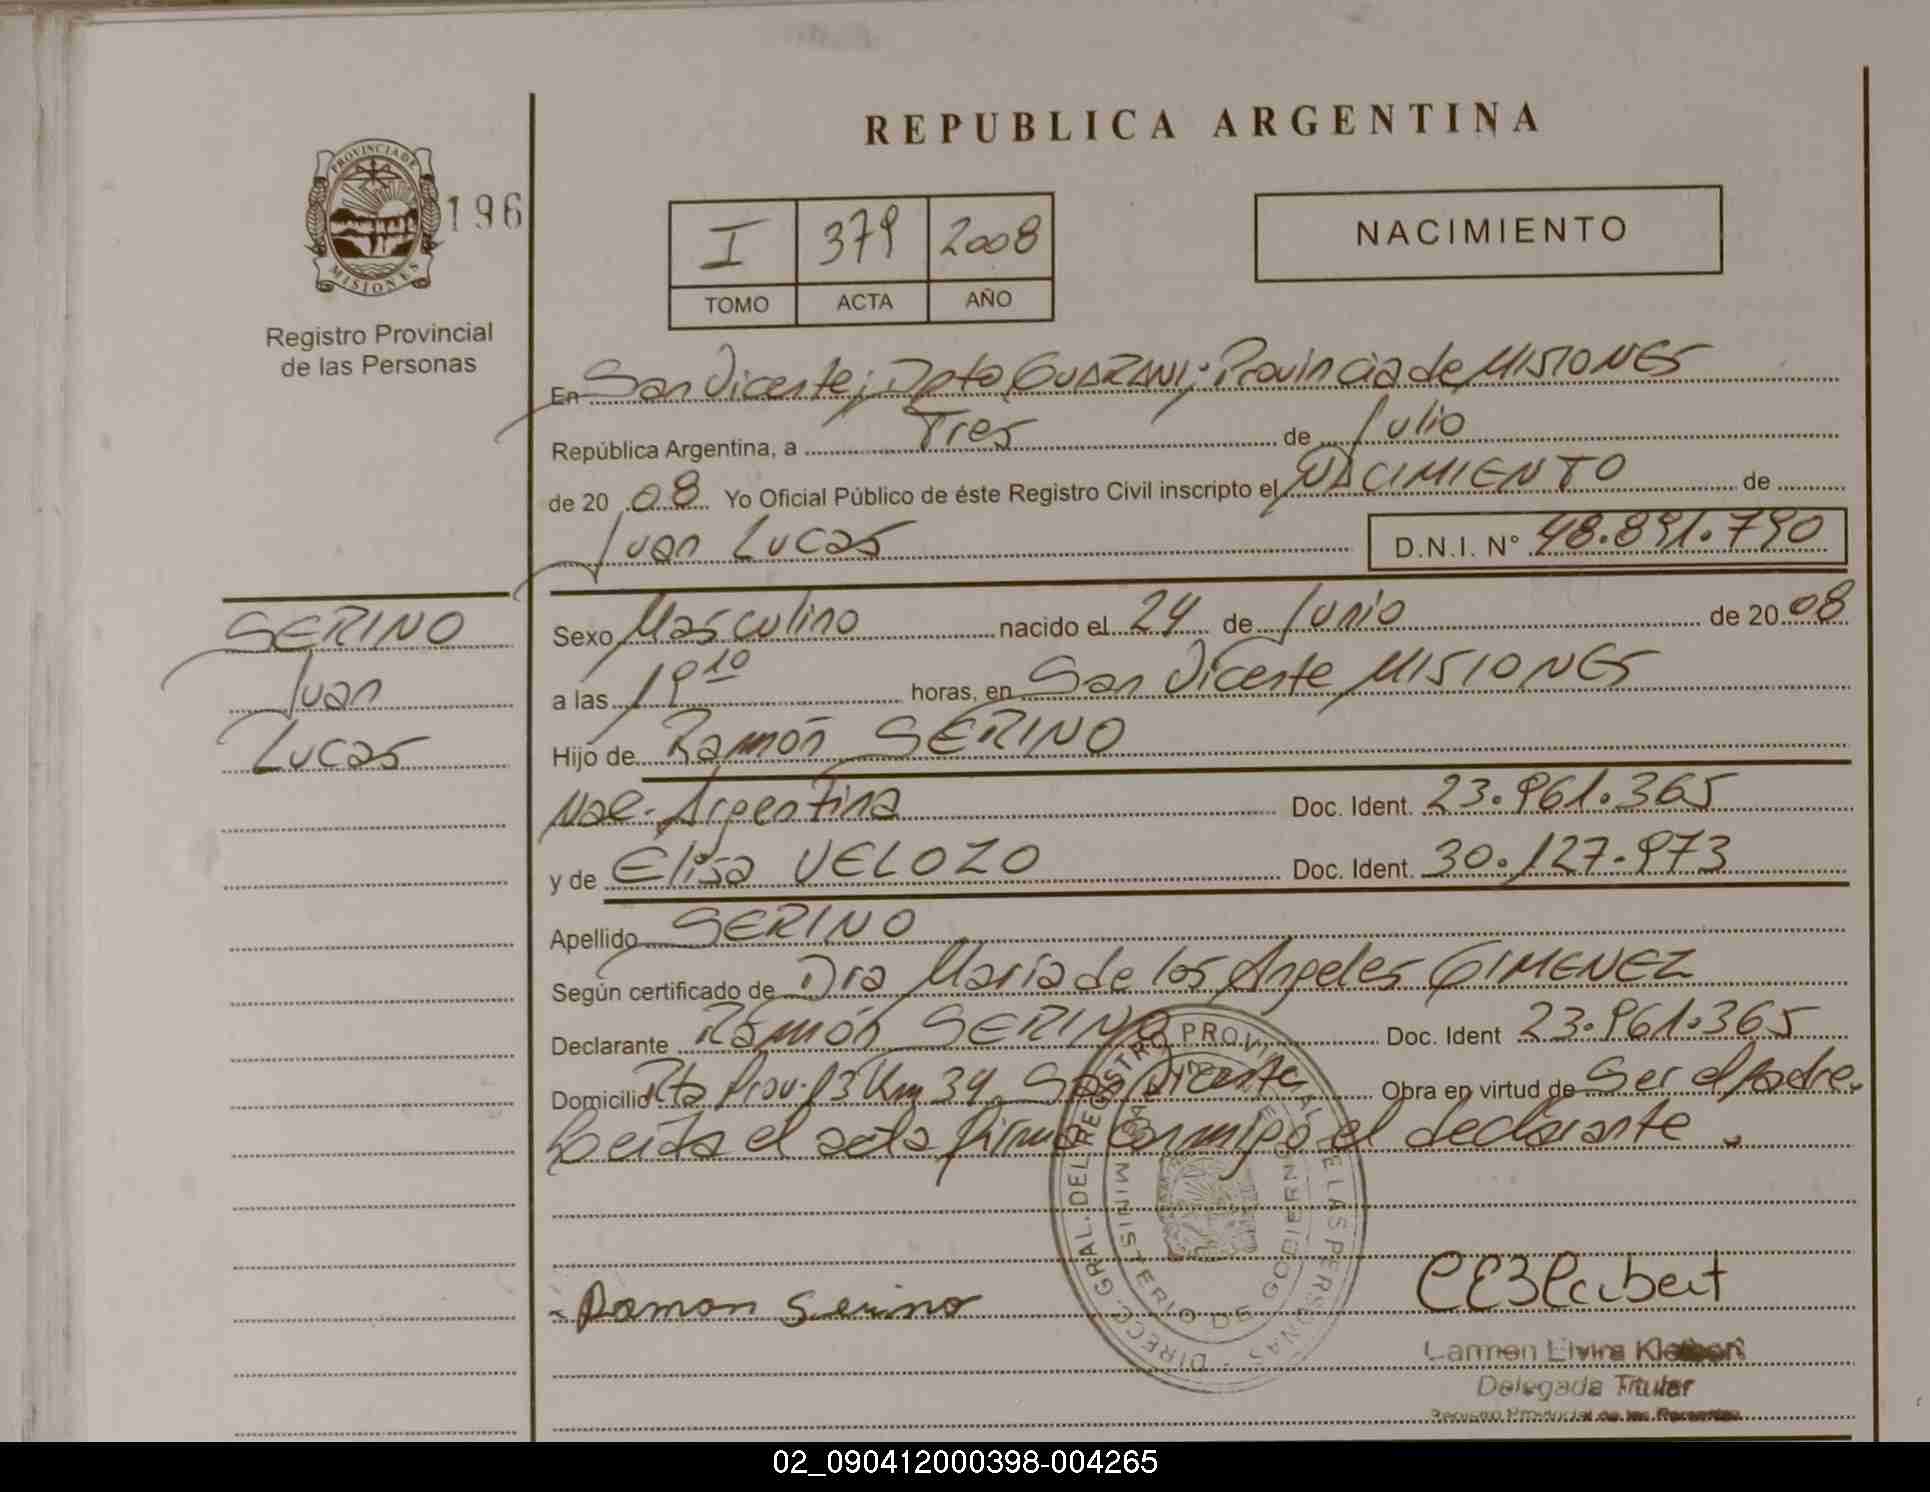 REPUBLICA ARGENTINA
PROVINCIA DE
MISIONES
196
Registro Provincial
de las Personas
I 379 2008
TOMO ACTA AÑO
NACIMIENTO
En San Vicente; Dpto GUARANI; Provincia de MISIONES
República Argentina, a Tres de Julio
de 20 08 Yo Oficial Público de éste Registro Civil inscripto el NACIMIENTO de
Juan Lucas D.N.I. N° 48.891.790
SERINO
Juan
Lucas
Sexo Masculino nacido el 24 de Junio de 20 08
a las 19 10 horas, en San Vicente MISIONES
Hijo de Ramón SERINO
Nac. Argentina Doc. Ident. 23.961.365
y de Elisa VELOZO Doc. Ident. 30.127.973
Apellido SERINO
Según certificado de Dra María de los Angeles GIMENEZ
Declarante Ramón SERINO Doc. Ident 23.961.365
Domicilio Rta Prov. 13 Km 34 San Vicente Obra en virtud de Ser el padre.
Leida el acta firma conmigo el declarante.
DIRECC. GRAL. DEL REGISTRO PROVINCIAL DE LAS PERSONAS
MINISTERIO DE GOBIERNO
Ramon Serino
Carmen Elvira
Delegada Titular
Registro Provincial de las Personas
02_090412000398-004265